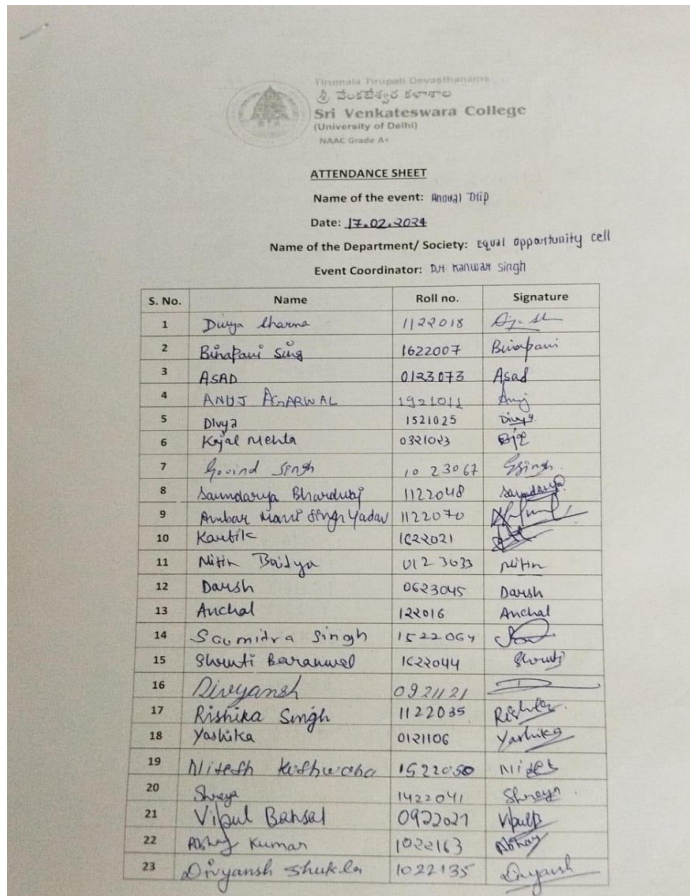 Tirumala Tirupati Devasthanams
శ్రీ వేంకటేశ్వర కళాశాల
Sri Venkateswara College
(University of Delhi)
NAAC Grade A+
ATTENDANCE SHEET
Name of the event: Annual Trip
Date: 17.02.2024
Name of the Department/ Society: Equal opportunity cell
Event Coordinator: Dr Kanwar Singh
S. No. Name Roll no. Signature
1 Divya Sharma 1122018
2 Binapani Sing 1622007 Binapani
3 ASAD 0123073 Asad
4 ANUJ AGARWAL 1921011 Anuj
5 Divya 1521025 Divya
6 Kajal Mehla 0321023
7 Govind Singh 1023067 GSingh
8 Saundarya Bharduaj 1122048 Saundarya
9 Ambar Mani Singh Yadav 1122070
10 Kartik 1622021
11 Nitin Baidya 0123033 Nitin
12 Darsh 0623045 Darsh
13 Anchal 122016 Anchal
14 Saumitra Singh 1522064
15 Shruti Baranwal 1622044 Shruti
16 Divyansh 0921121
17 Rishika Singh 1122035 Rishika
18 Yashika 0121106 Yashika
19 Nitesh Kushwaha 1522050 Nitesh
20 Shreya 1422041 Shreya
21 Vipul Bansal 0922021 Vipul
22 Abhay Kumar 1022163 Abhay
23 Divyansh Shukla 1022135 Divyansh